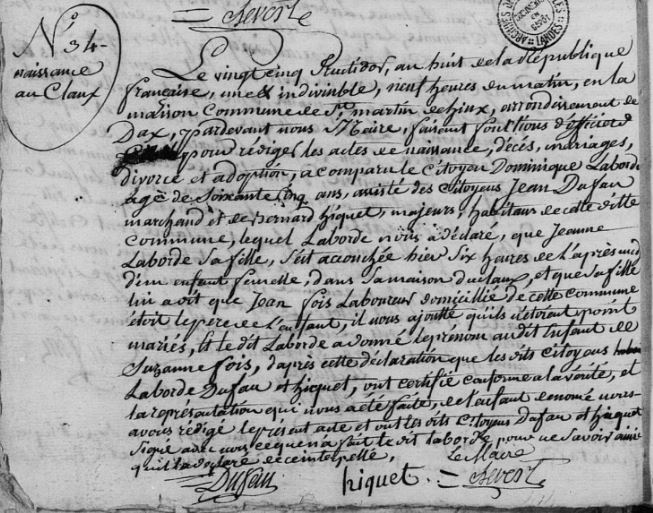 = Severt
N.º 34
naissance
au Claux
ARCHIVES
LANDES
Le vingt cinq fructidor, an huit de la République
française, une & indivisible, neuf heures du matin, en la
maison Commune de St. martin de hinx, arrondissement de
Dax, pardevant nous Maire, faisant fonctions d'officier
pour rédiger les actes de naissance, décès, mariages,
divorce et adoption, a comparu le Citoyen Dominique Laborde
agé de Soixante Cinq ans, assisté des Citoyens Jean Dufau
marchand et de Bernard hiquet, majeurs, habitans de cette ditte
Commune, lequel Laborde nous a déclaré, que Jeanne
Laborde sa fille, s'est accouchée hier Six heures de l'après midi
d'un enfant femelle, dans sa maison du claux, et que sa fille
lui a dit que Jean fois Laboureur domicillié de cette commune
étoit le pere de l'enfant, il nous ajoutte qu'ils n'étoient point
mariés, Et le dit Laborde a donné le prénom au dit Enfant de
Suzanne fois, d'après cette déclaration que les dits Citoyens
Laborde Dufau et hiquet, ont certifié conforme a la vérité, et
la représentation qui nous a été faite, de l'enfant denomé nous
avons rédigé le présent acte et ont les dits Citoyens dufau et hiquet
Signé avec nous ce que n'a fait le dit laborde, pour ne Savoir ainsi
qu'il la déclaré de ce interpellé,
Le Maire
Dufau hiquet = Severt